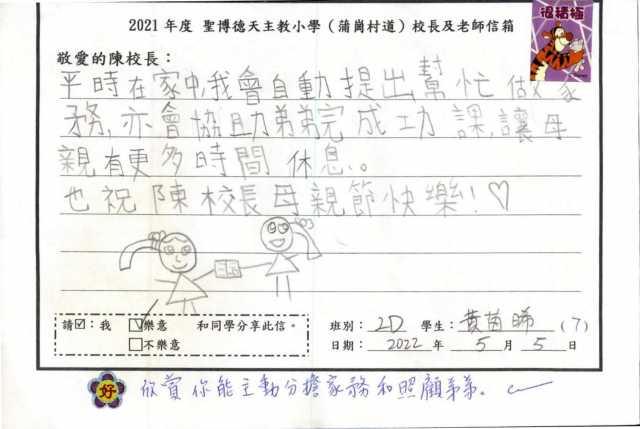 2021 年度 聖博德天主教小學（蒲崗村道）校長及老師信箱
積極
敬愛的陳校長：
平時在家中，我會自動提出幫忙做家
務，亦會協助弟弟完成功課，讓母
親有更多時間休息。
也祝陳校長母親節快樂！♡
請☑：我 ☑樂意 和同學分享此信。
□不樂意
班別：2D 學生：黃茵晞（7）
日期：2022 年 5 月 5 日
好 欣賞你能主動分擔家務和照顧弟弟。